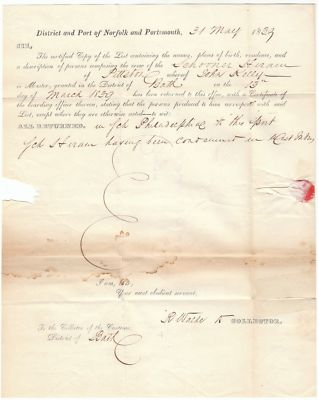 District and Port of Norfolk and Portsmouth, 31 May 1839
SIR,
The certified Copy of the List containing the names, places of birth, residence, and
a description of persons composing the crew of the Schooner Hiram
of Pittston whereof John Kelly
is Master, granted in the District of Bath on the 13
day of March 1839 has been returned to this office, with a Certificate of
the boarding officer therein, stating that the persons produced to him correspond with said
List, except where they are otherwise noted—to wit:
ALL RETURNED, in Sch Philadelphia to this port
Sch Hiram having been condemned in West Indies
I am, Sir,
Your most obedient servant,
COLLECTOR.
To the Collector of the Customs,
District of Bath